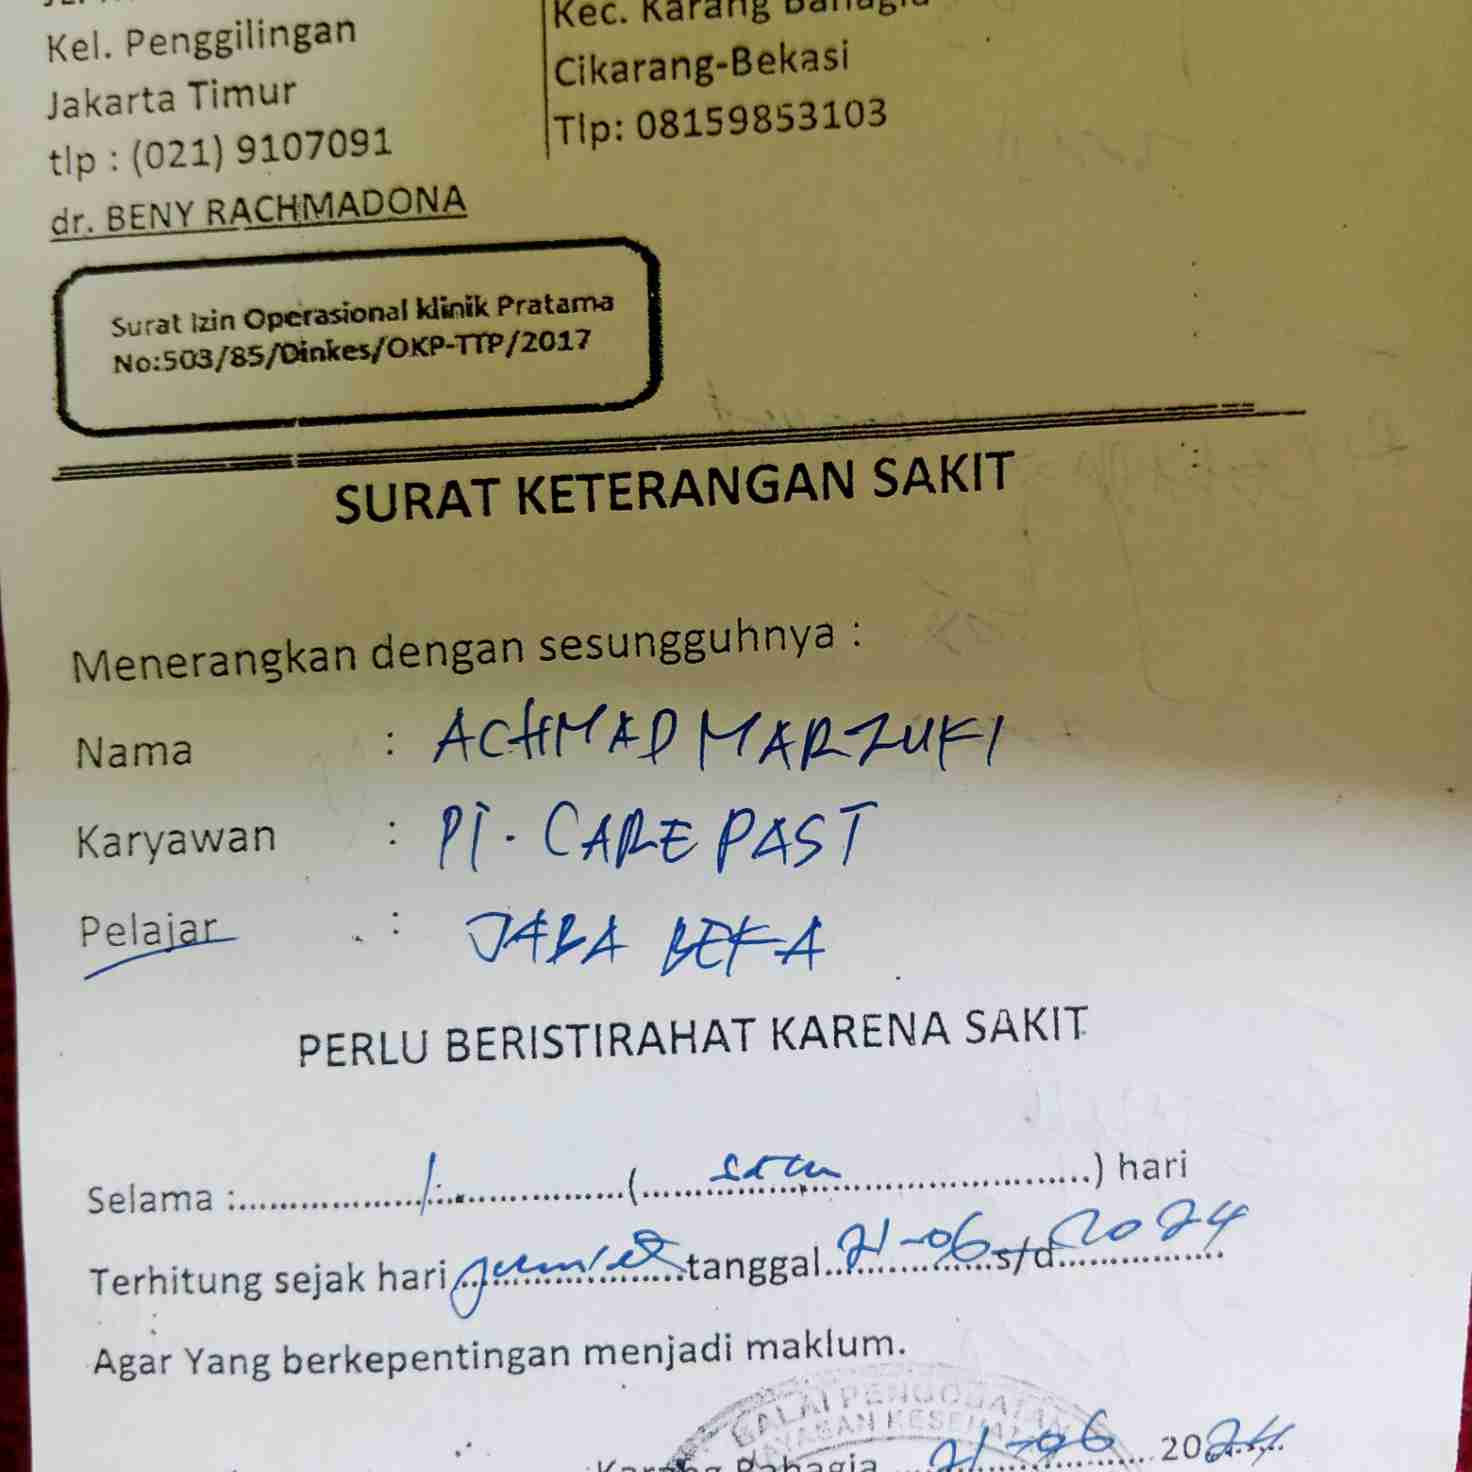 Kel. Penggilingan
Jakarta Timur
tlp : (021) 9107091
dr. BENY RACHMADONA
Kec. Karang Bahagia
Cikarang-Bekasi
Tlp: 08159853103
Surat Izin Operasional klinik Pratama
No:503/85/Dinkes/OKP-TTP/2017
SURAT KETERANGAN SAKIT
Menerangkan dengan sesungguhnya :
Nama : ACHMAD MARZUKI
Karyawan : PT. CARE PAST
Pelajar : JABA BEKA
PERLU BERISTIRAHAT KARENA SAKIT
Selama :........1........(........satu........) hari
Terhitung sejak hari jum'at tanggal 21-06 s/d 2024
Agar Yang berkepentingan menjadi maklum.
BALAI PENGOBATAN
YAYASAN KESEHATAN
Karang Bahagia 21-06 2024